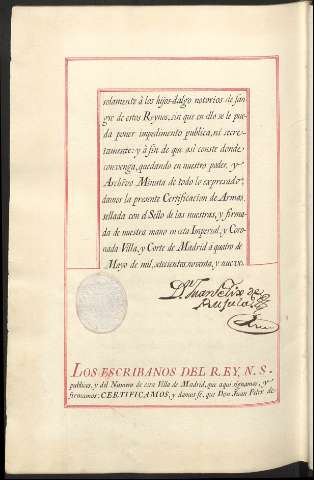 solamente à los hijos-dalgo notorios de san-
gre de estos Reynos, sin que en ello se le pue-
da poner impedimento publica, ni secre-
tamente: y à fin de que asi conste donde
convenga, quedando en nuestro poder, y
Archivo Minuta de todo lo expresado;
damos la presente Certificacion de Armas
sellada con el Sello de las nuestras, y firma-
da de nuestra mano en esta Imperial, y Coro-
nada Villa, y Corte de Madrid à quatro de
Mayo de mil, setecientos noventa, y nueve.
Dn. Juan Felix de
Rujula
LOS ESCRIBANOS DEL REY, N. S.
publicos, y del Numero de esta Villa de Madrid, que aqui signamos, y
firmamos: CERTIFICAMOS, y damos fe, que Don Juan Felix de